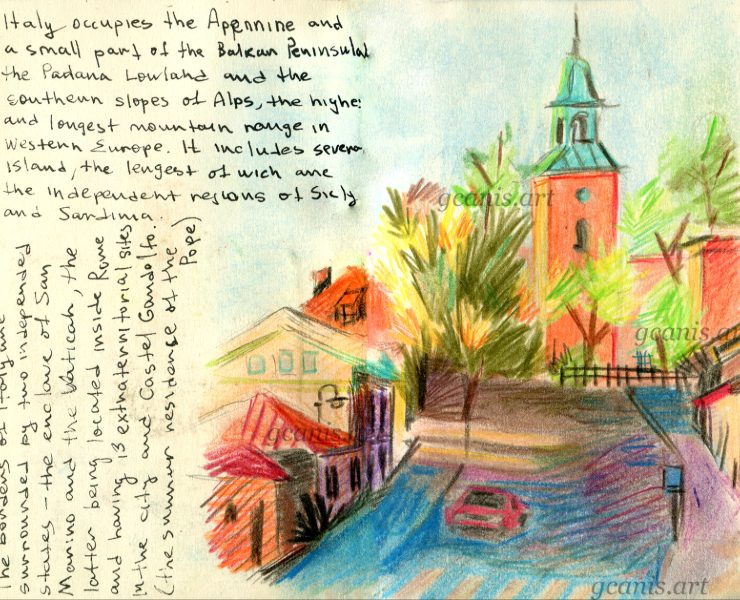 Italy occupies the Apennine and
a small part of the Balkan Peninsulal
the Padana Lowland and the
southern slopes of Alps, the highe
and longest mountain range in
Western Europe. It includes severa
island, the lengest of wich are
the independent regions of Sicily
and Sardinia.
The borders of Italy are
surrounded by two independed
states - the enclave of San
Marino and the Vatican, the
latter being located inside Rome
and having 13 extraterritorial sites
in the city and Castel Gandolfo.
(the summer residence of the
Pope)
gcanis.art
gcanis.art
gcanis.art
gcanis.art